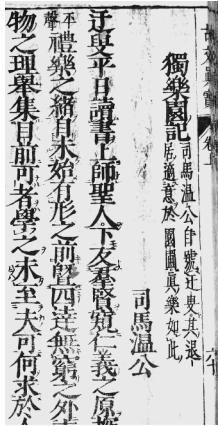 獨樂園記 司馬溫公自號迂叟其退
居適意於園圃真樂如此
司馬溫公
迂叟平日讀書上師聖人下友羣賢窺仁義之原探
平聲
禮樂之緒自未始有形之前曁四達無窮之外
物之理舉集目前可者學之未至夫可何求於人